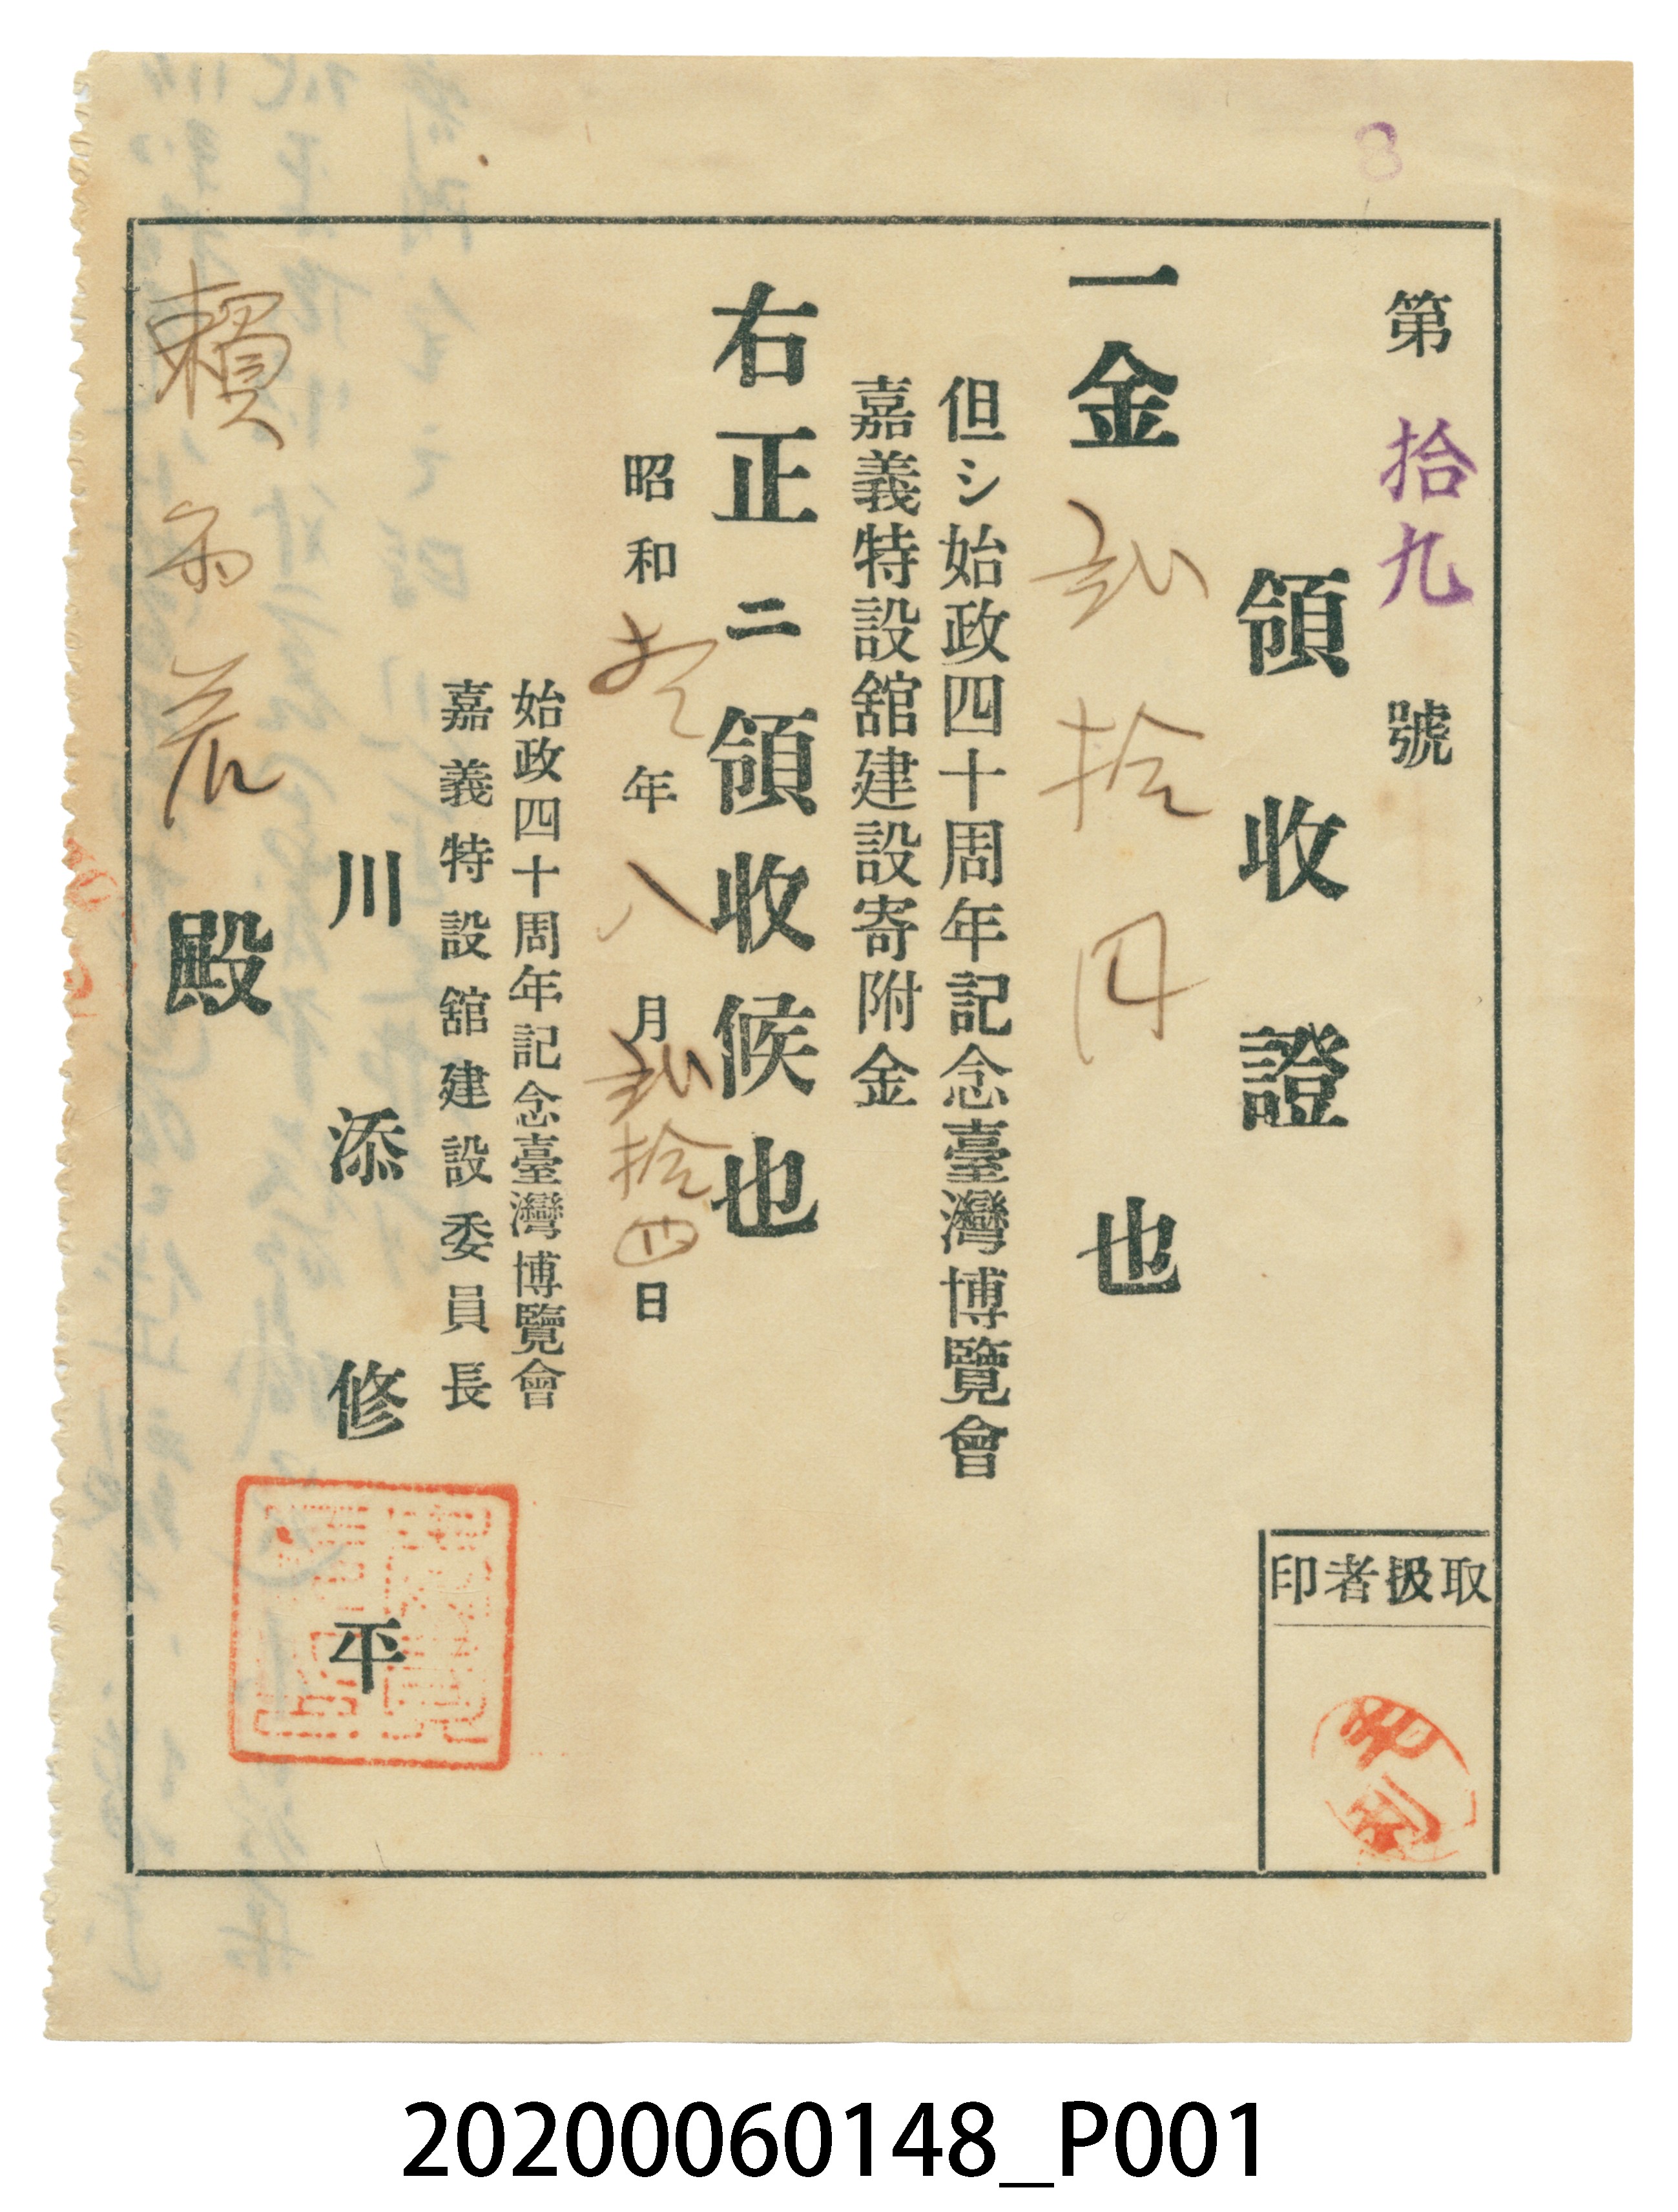 第拾九號
領收證
一金貳拾円也
但シ始政四十周年記念臺灣博覽會
嘉義特設舘建設寄附金
右正ニ領收候也
昭和拾年八月貳拾四日
始政四十周年記念臺灣博覽會
嘉義特設舘建設委員長
川添修平
賴 殿
取扱者印
20200060148_P001